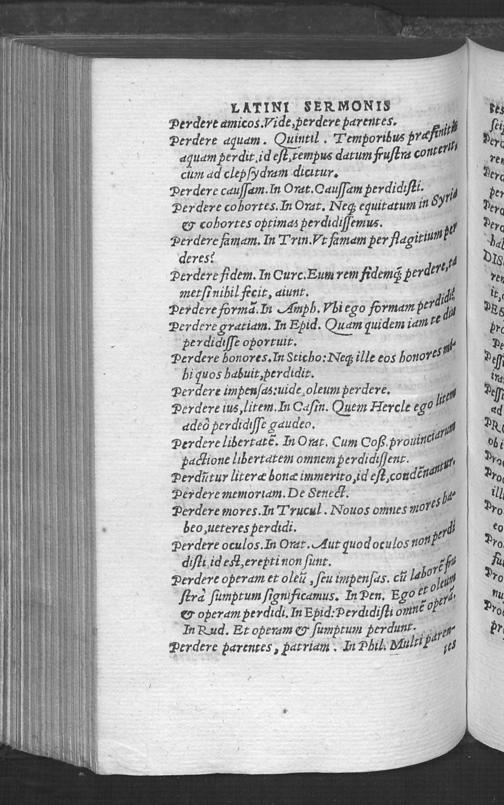 LATINI SERMONIS
Perdere amicos. Vide, perdere parentes.
Perdere aquam. Quintil. Temporibus præfinitis
aquam perdit, id est, tempus datum frustra conterit,
cum ad clepsydram dicitur.
Perdere caussam. In Orat. Caussam perdidisti.
Perdere cohortes. In Orat. Neq; equitatum in Syria
& cohortes optimas perdidissemus.
Perdere famam. In Trin. Vt famam per flagitium per
deres?
Perdere fidem. In Curc. Eum rem fidemq́; perdere, ta
metsi nihil fecit, aiunt.
Perdere formã. In Amph. Vbi ego formam perdidi?
Perdere gratiam. In Epid. Quam quidem iam te diu
perdidisse oportuit.
Perdere honores. In Sticho: Neq; ille eos honores mi-
hi quos habuit, perdidit.
Perdere impensas: uide, oleum perdere.
Perdere ius, litem. In Casin. Quem Hercle ego litem
adeò perdidisse gaudeo.
Perdere libertatẽ. In Orat. Cum Coss. prouinciarum
pactione libertatem omnem perdidissent.
Perdũtur literæ bonæ immerito, id est, condẽnantur.
Perdere memoriam. De Senect.
Perdere mores. In Trucul. Nouos omnes mores ha-
beo, ueteres perdidi.
Perdere oculos. In Orat. Aut quod oculos non perdi
disti, id est, erepti non sunt.
Perdere operam et oleũ, seu impensas. cũ laborẽ fru
strà sumptum significamus. In Pen. Ego et oleum
& operam perdidi. In Epid: Perdidisti omnẽ operã.
In Rud. Et operam & sumptum perdunt.
Perdere parentes, patriam. In Phil. Multi paren-
tes